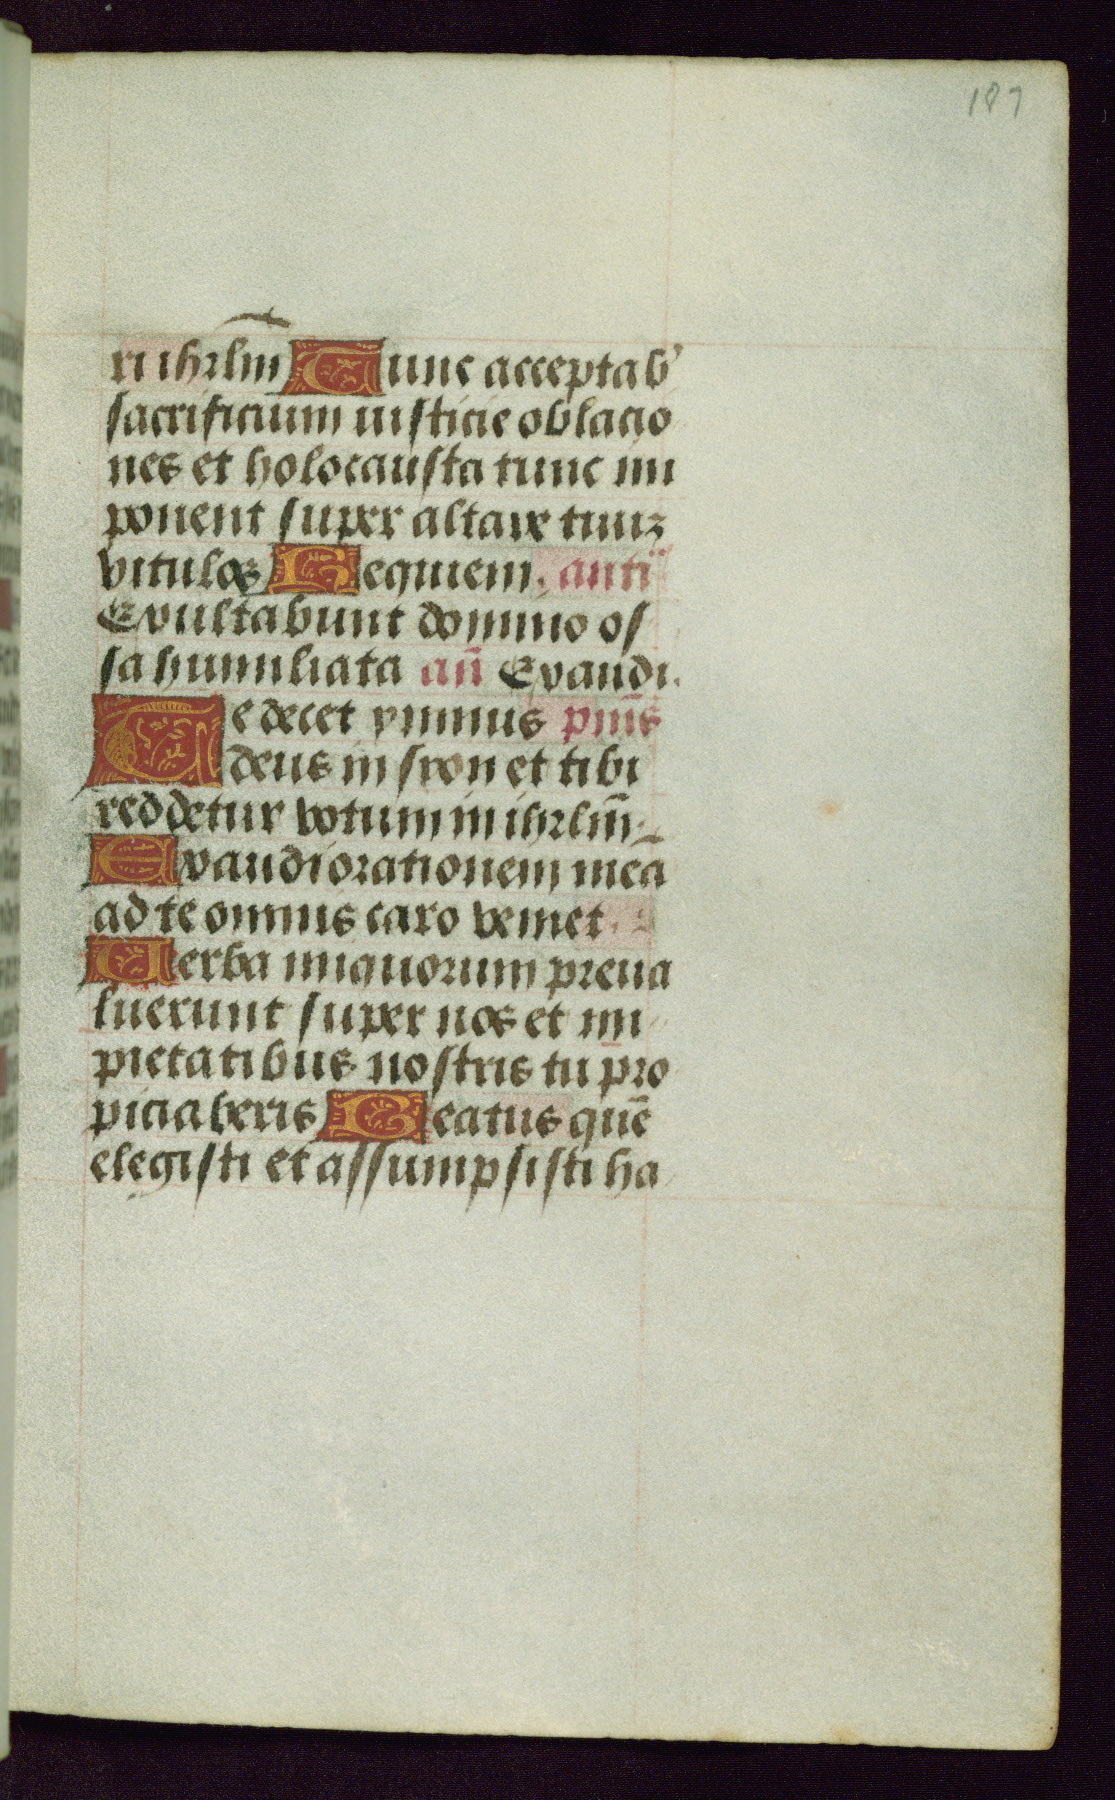 187
ri ihrlm̄ Tunc acceptab'
sacrificium iusticie oblacio
nes et holocausta tunc im
ponent super altare tuuȝ
vitulos Requiem. anti
Exultabunt domino os
sa humiliata an̄ Exaudi.
Te decet ymnus psm̄s
deus in syon et tibi
reddetur votum in ihrlm̄.
Exaudi orationem mea
ad te omnis caro veniet.
Verba iniquorum preua
luerunt super nos et im
pietatibus nostris tu pro
piciaberis Beatus quē
elegisti et assumpsisti ha